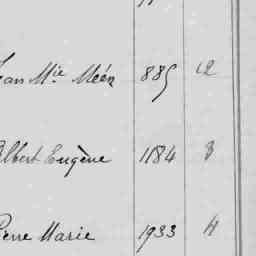 Jean Mie Méen 885 2
Albert Eugène 1184 3
Pierre Marie 1933 4